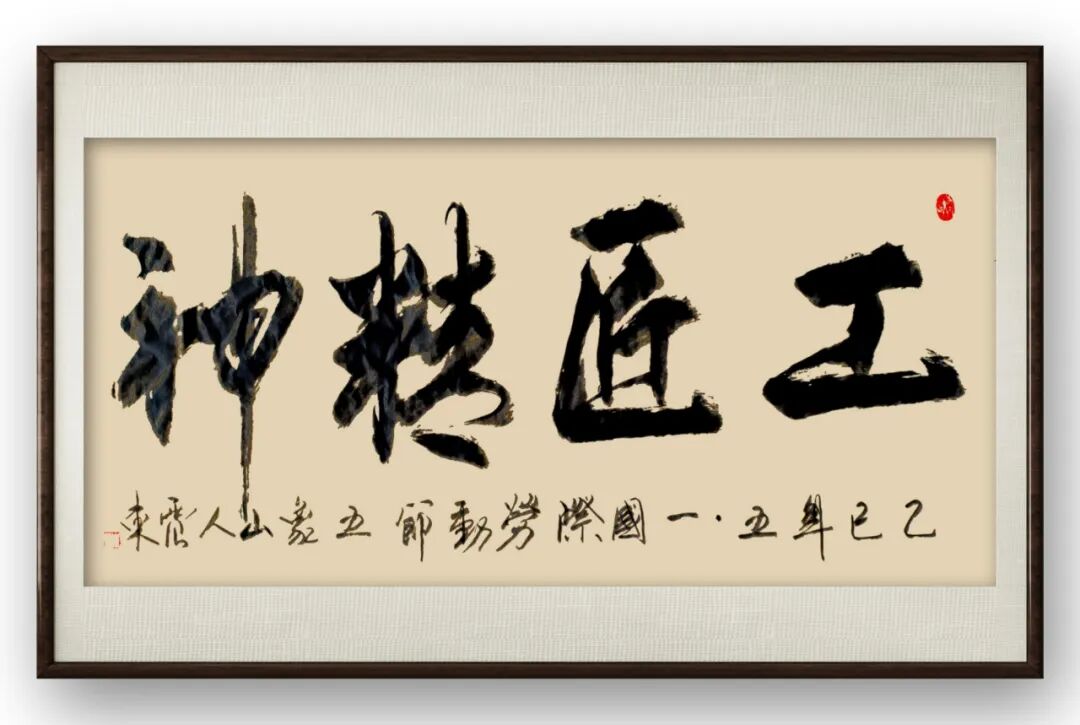 工匠精神
乙巳年五·一國際勞動節五象山人震東